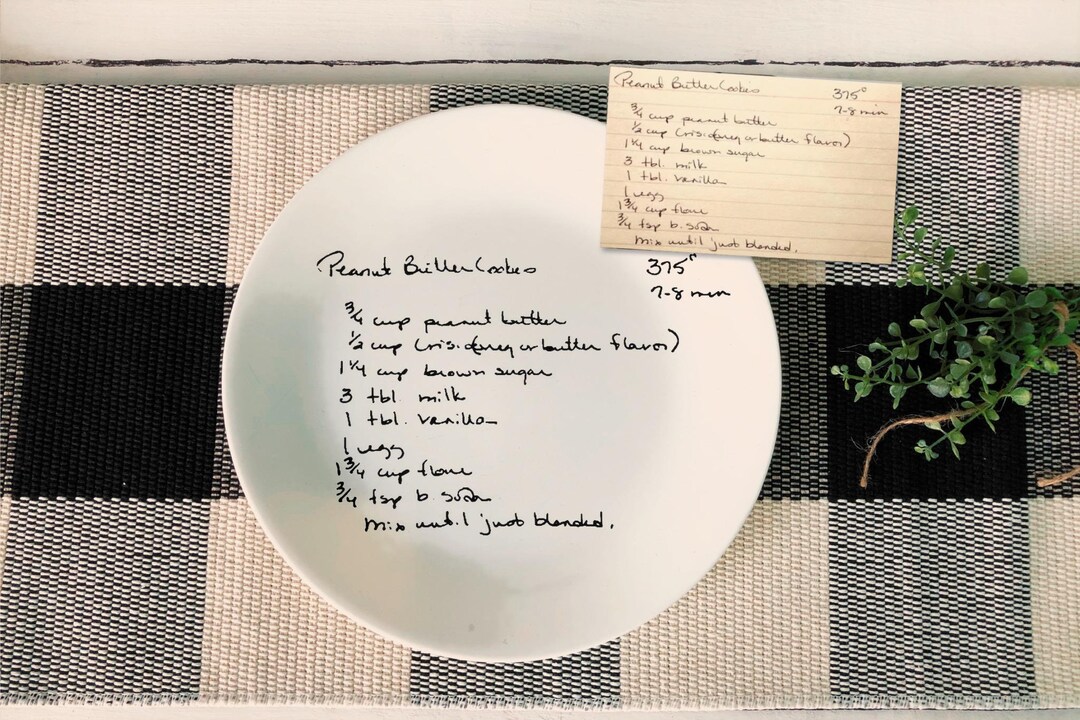 Peanut Butter Cookies 375°
7-8 min
3/4 cup peanut butter
1/2 cup (or butter flavor)
1 1/4 cup brown sugar
3 tbl. milk
1 tbl. vanilla
1 egg
1 3/4 cup flour
3/4 tsp b. soda
Mix until just blended.
Peanut Butter Cookies 375°
7-8 min
3/4 cup peanut butter
1/2 cup (or butter flavor)
1 1/4 cup brown sugar
3 tbl. milk
1 tbl. vanilla
1 egg
1 3/4 cup flour
3/4 tsp b. soda
Mix until just blended.